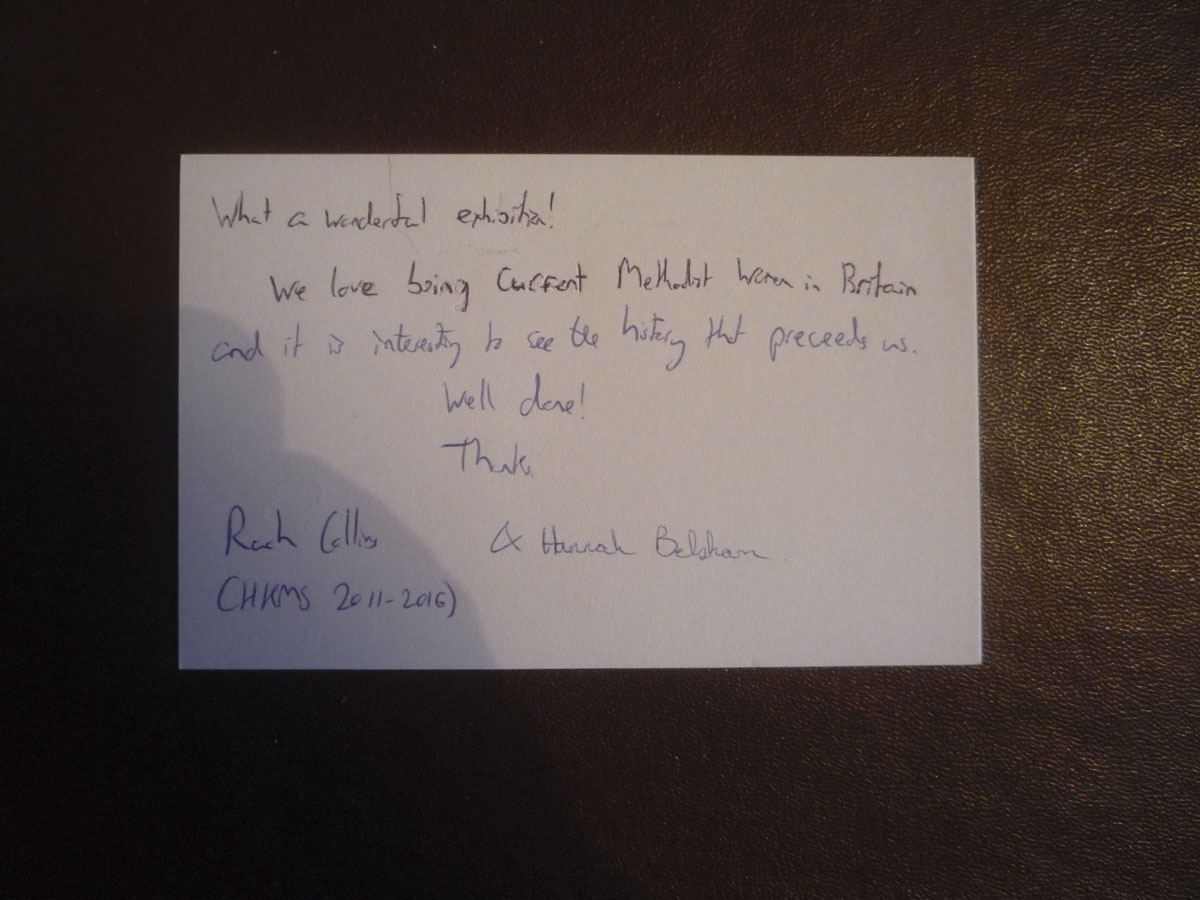 What a wonderful exhibition!
We love being current Methodist women in Britain
and it is interesting to see the history that preceeds us.
Well done!
Thanks.
Rach Collins & Hannah Belsham
(HKMS 2011-2016)